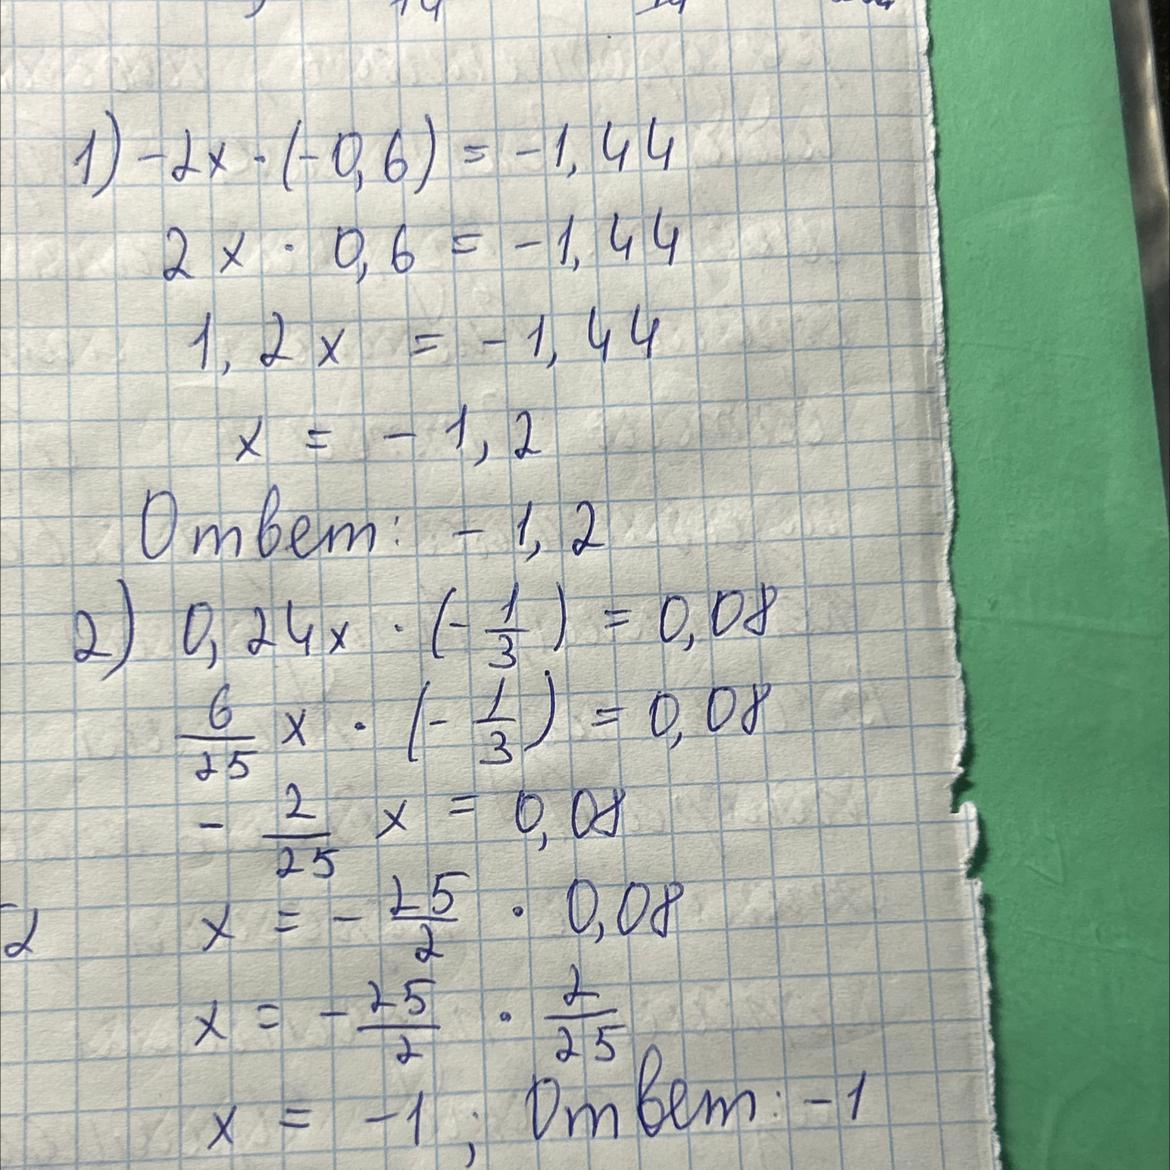 1) -2x · (-0,6) = -1,44
2x · 0,6 = -1,44
1,2x = -1,44
x = -1,2
Ответ: -1,2
2) 0,24x · (-1/3) = 0,08
6/25 x · (-1/3) = 0,08
- 2/25 x = 0,08
x = - 25/2 · 0,08
x = - 25/2 · 2/25
x = -1; Ответ: -1